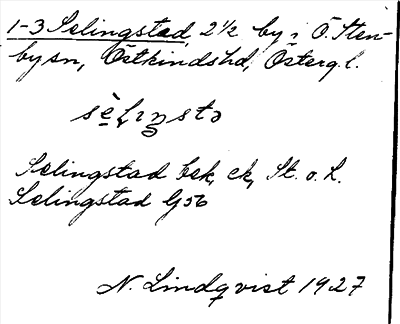 1-3 Selingstad, 2½ by i Ö. Sten-
bysn, Östkindshd, Österg. l.
sèlıŋstə
Selingstad bek, ek, St. o. L.
Selingstad G56
N. Lindqvist 1927